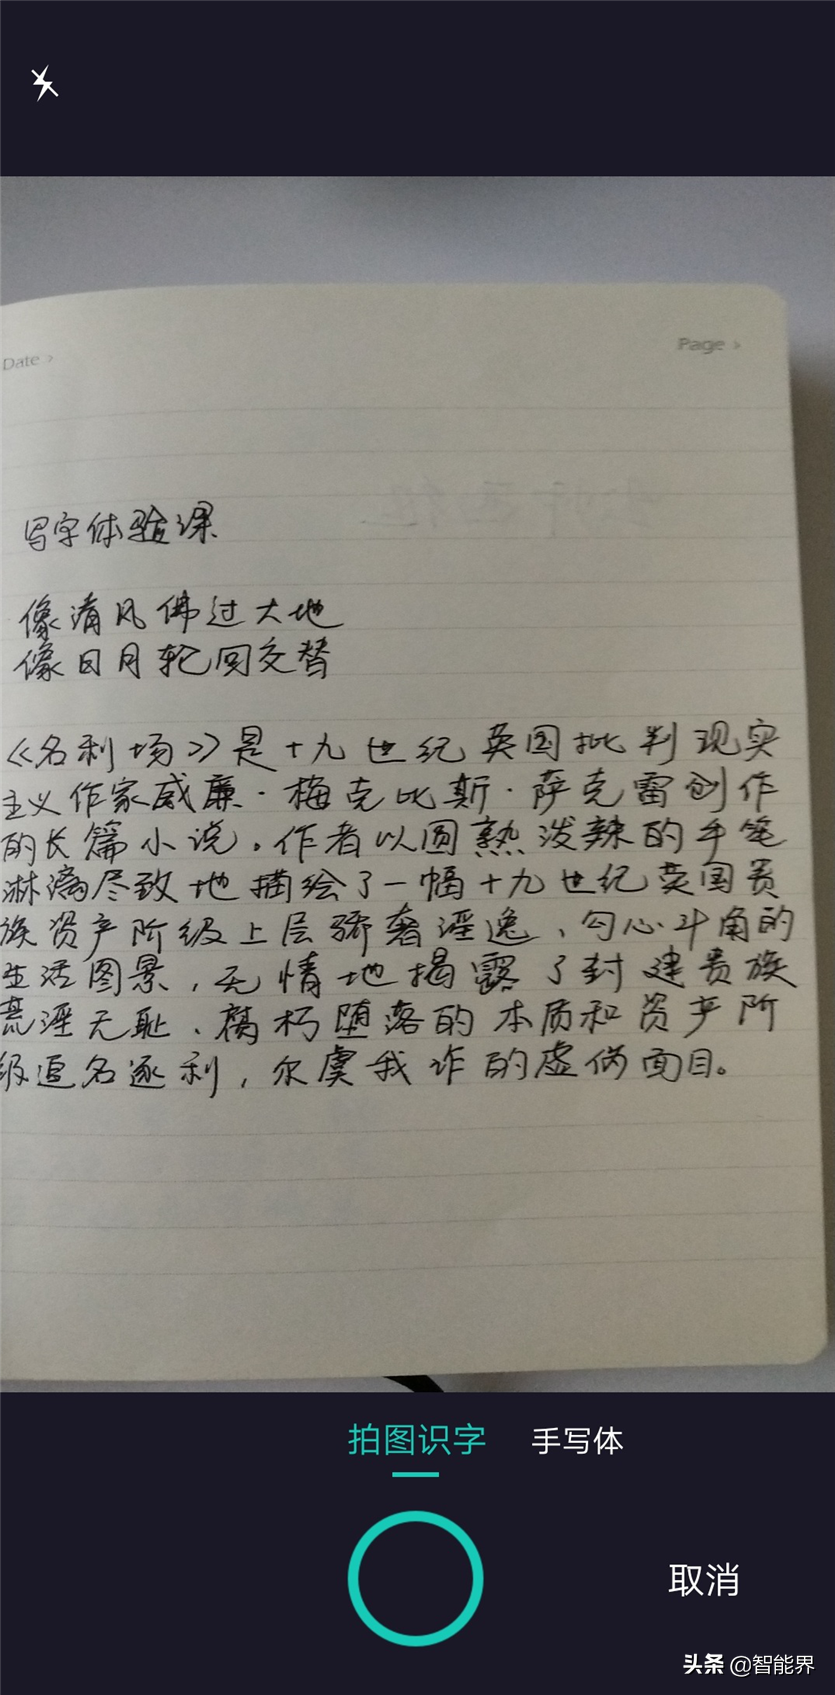 Date >
Page >
写字体验课
像清风佛过大地
像日月轮回交替
《名利场》是十九世纪英国批判现实
主义作家威廉·梅克比斯·萨克雷创作
的长篇小说。作者以圆熟泼辣的手笔
淋漓尽致地描绘了一幅十九世纪英国贵
族资产阶级上层骄奢淫逸、勾心斗角的
生活图景，无情地揭露了封建贵族
荒淫无耻、腐朽堕落的本质和资产阶
级追名逐利，尔虞我诈的虚伪面目。
拍图识字 手写体
取消
头条 @智能界